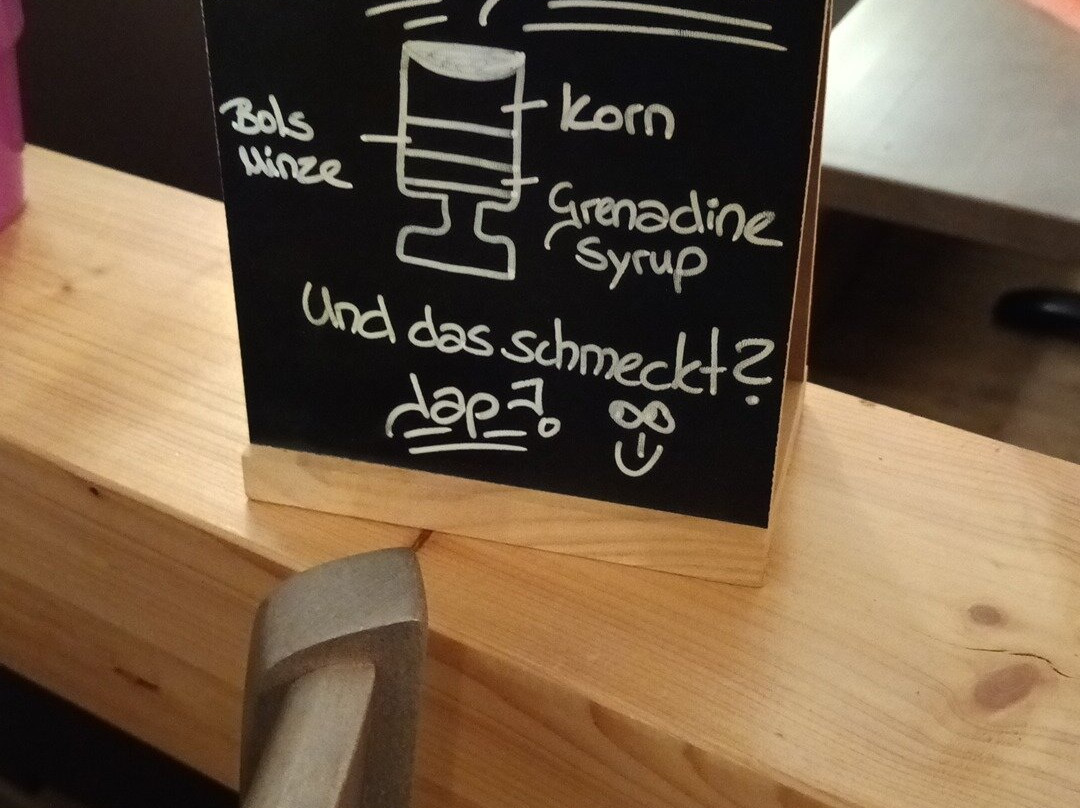 Korn
Bols
Minze
Grenadine
Syrup
Und das schmeckt?